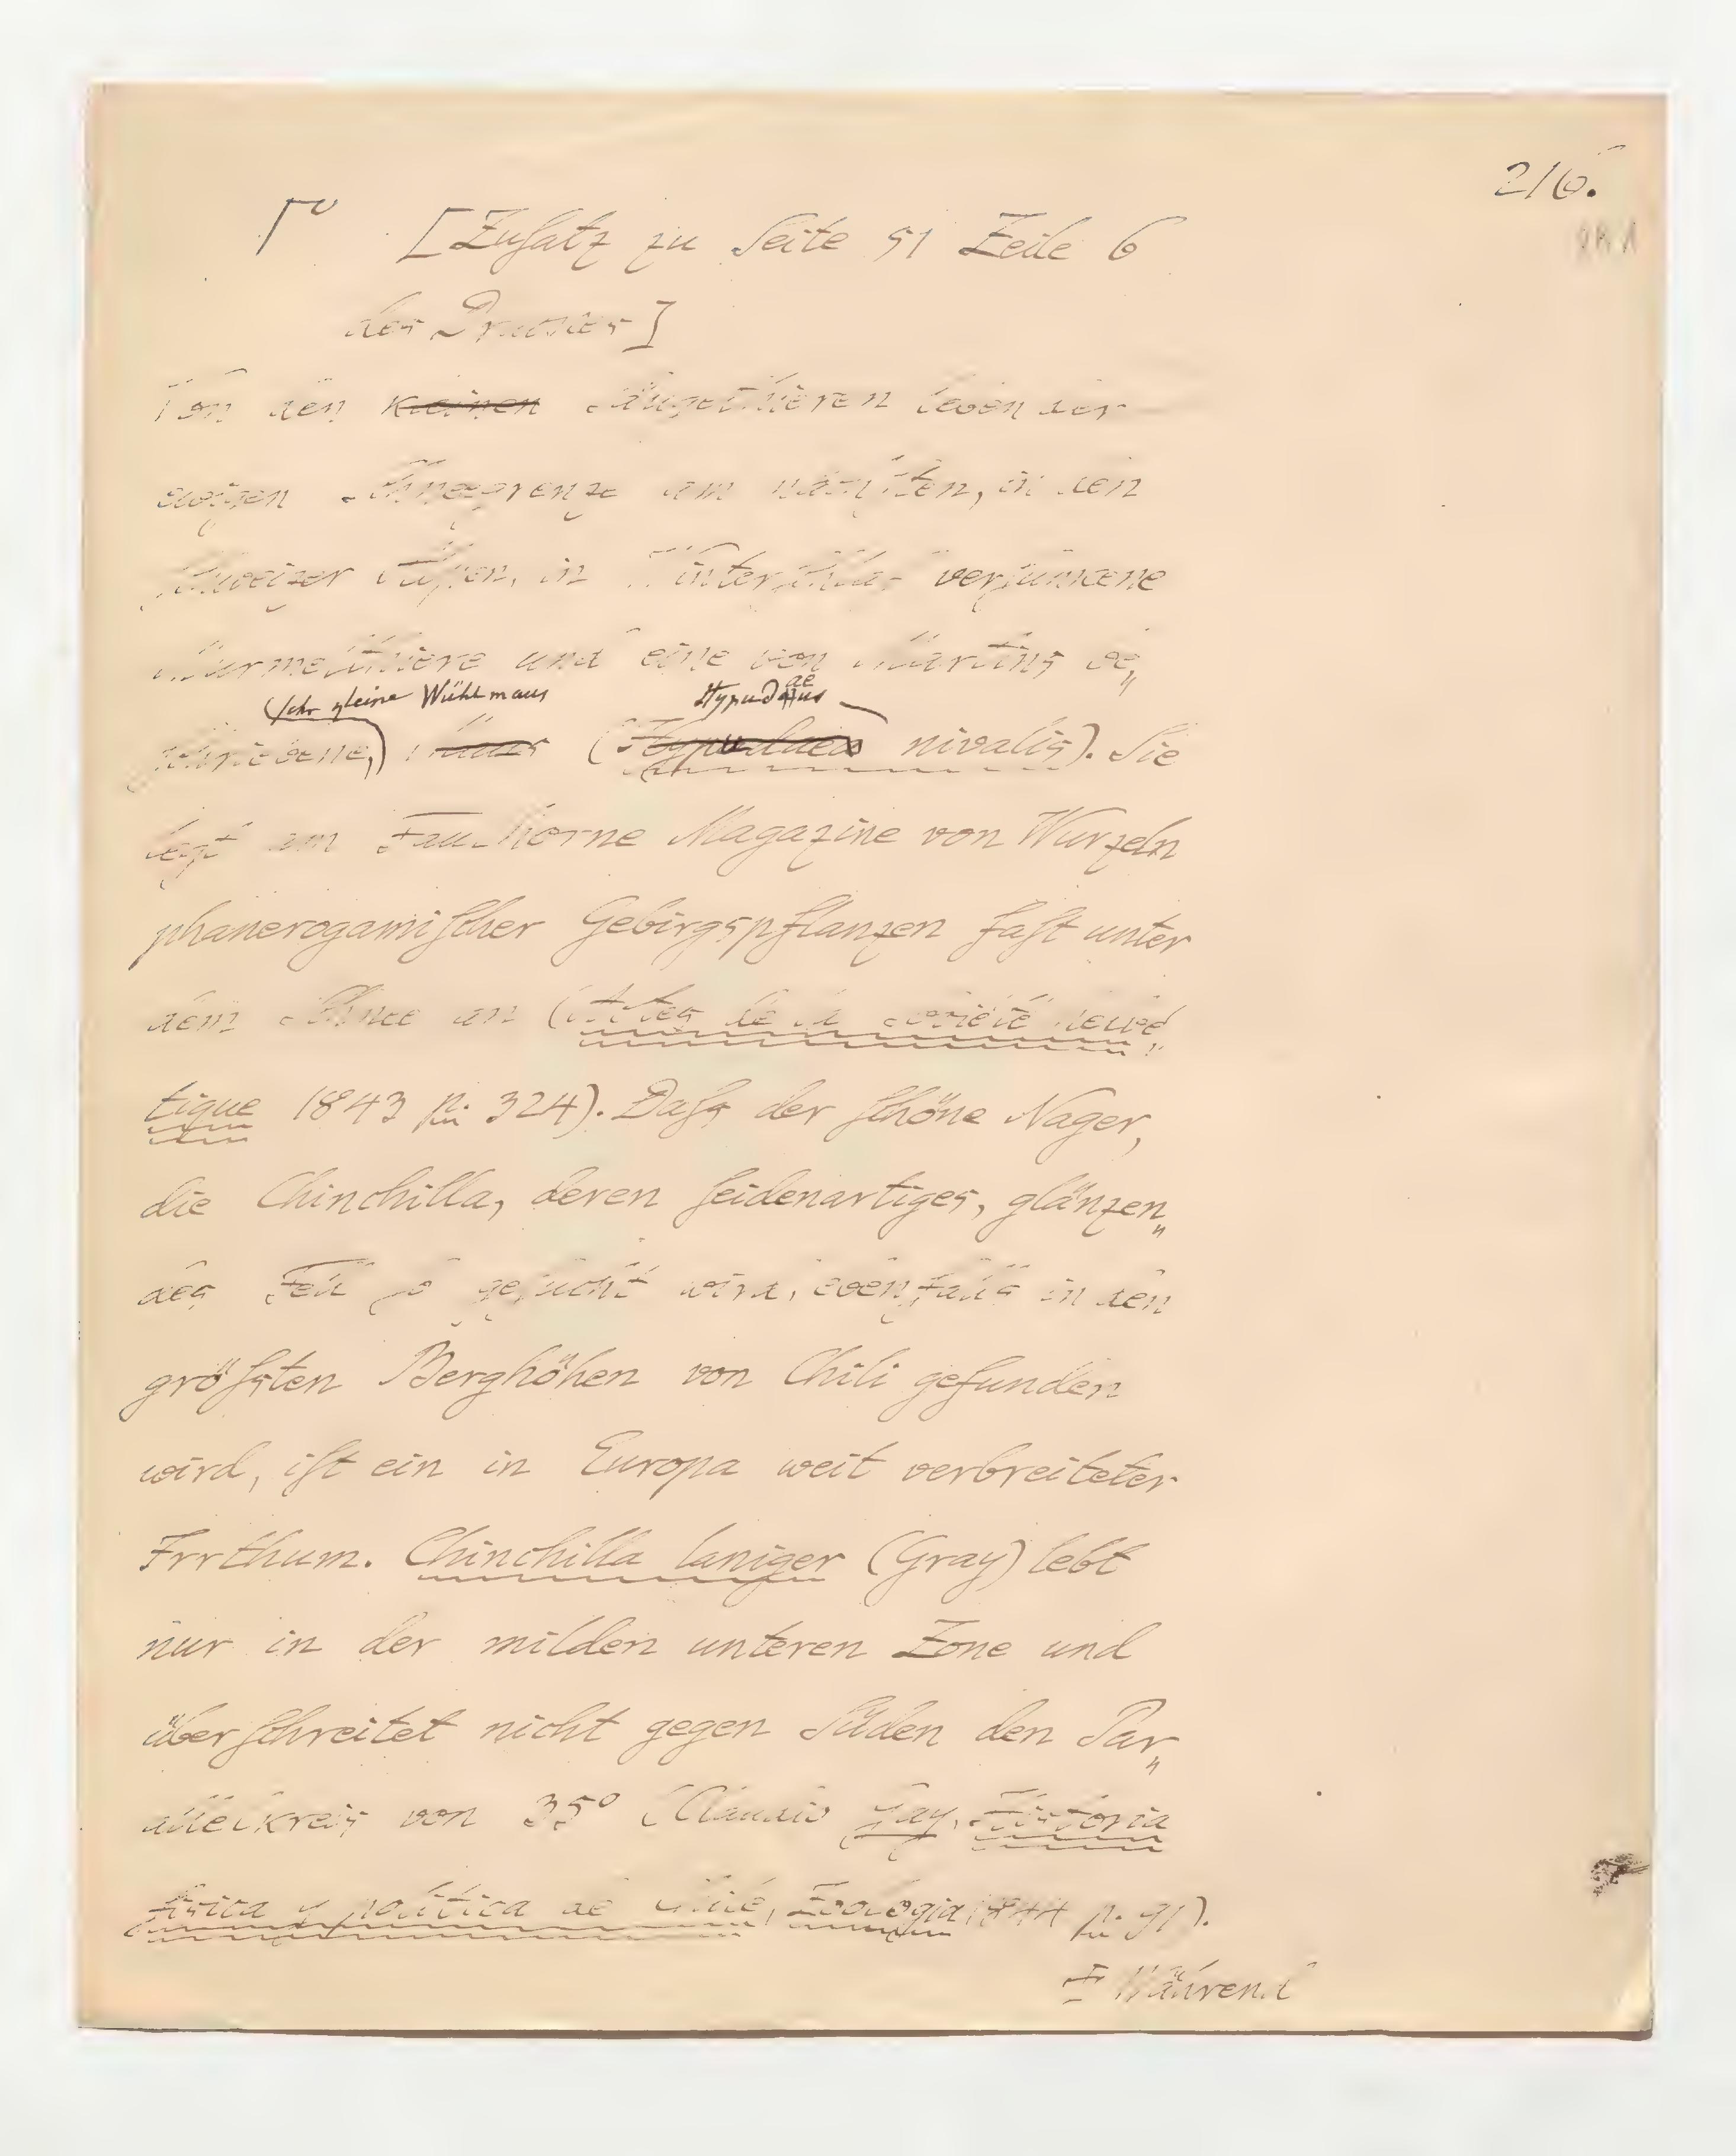 216.
[Zusatz zu Seite 51 Zeile 6
des Druckes]
Von den kleinen Säugethieren leben der
ewigen Schneegrenze am nächsten, in den
Schweizer Alpen, in Winterschlaf versunkene
Murmelthiere und eine von Martins be„
sehr kleine Wühlmaus Hypudaeus
schriebene, Maus (Hypudaea nivalis). Sie
legt am Faulhorne Magazine von Wurzeln
phanerogamischer Gebirgspflanzen fast unter
dem Schnee an (Actes de la Société helvé„
tique 1843 p. 324). Dass der schöne Nager,
die Chinchilla, deren seidenartiges, glänzen„
des Fell so gesucht wird, ebenfalls in den
grössten Berghöhen von Chili gefunden
wird, ist ein in Europa weit verbreiteter
Irrthum. Chinchilla laniger (Gray) lebt
nur in der milden unteren Zone und
überschreitet nicht gegen Süden den Par„
allelkreis von 35° (Claudio Gay, Historia
fisica y politica de Chile, Zoologia 1844 p. 91).
Während